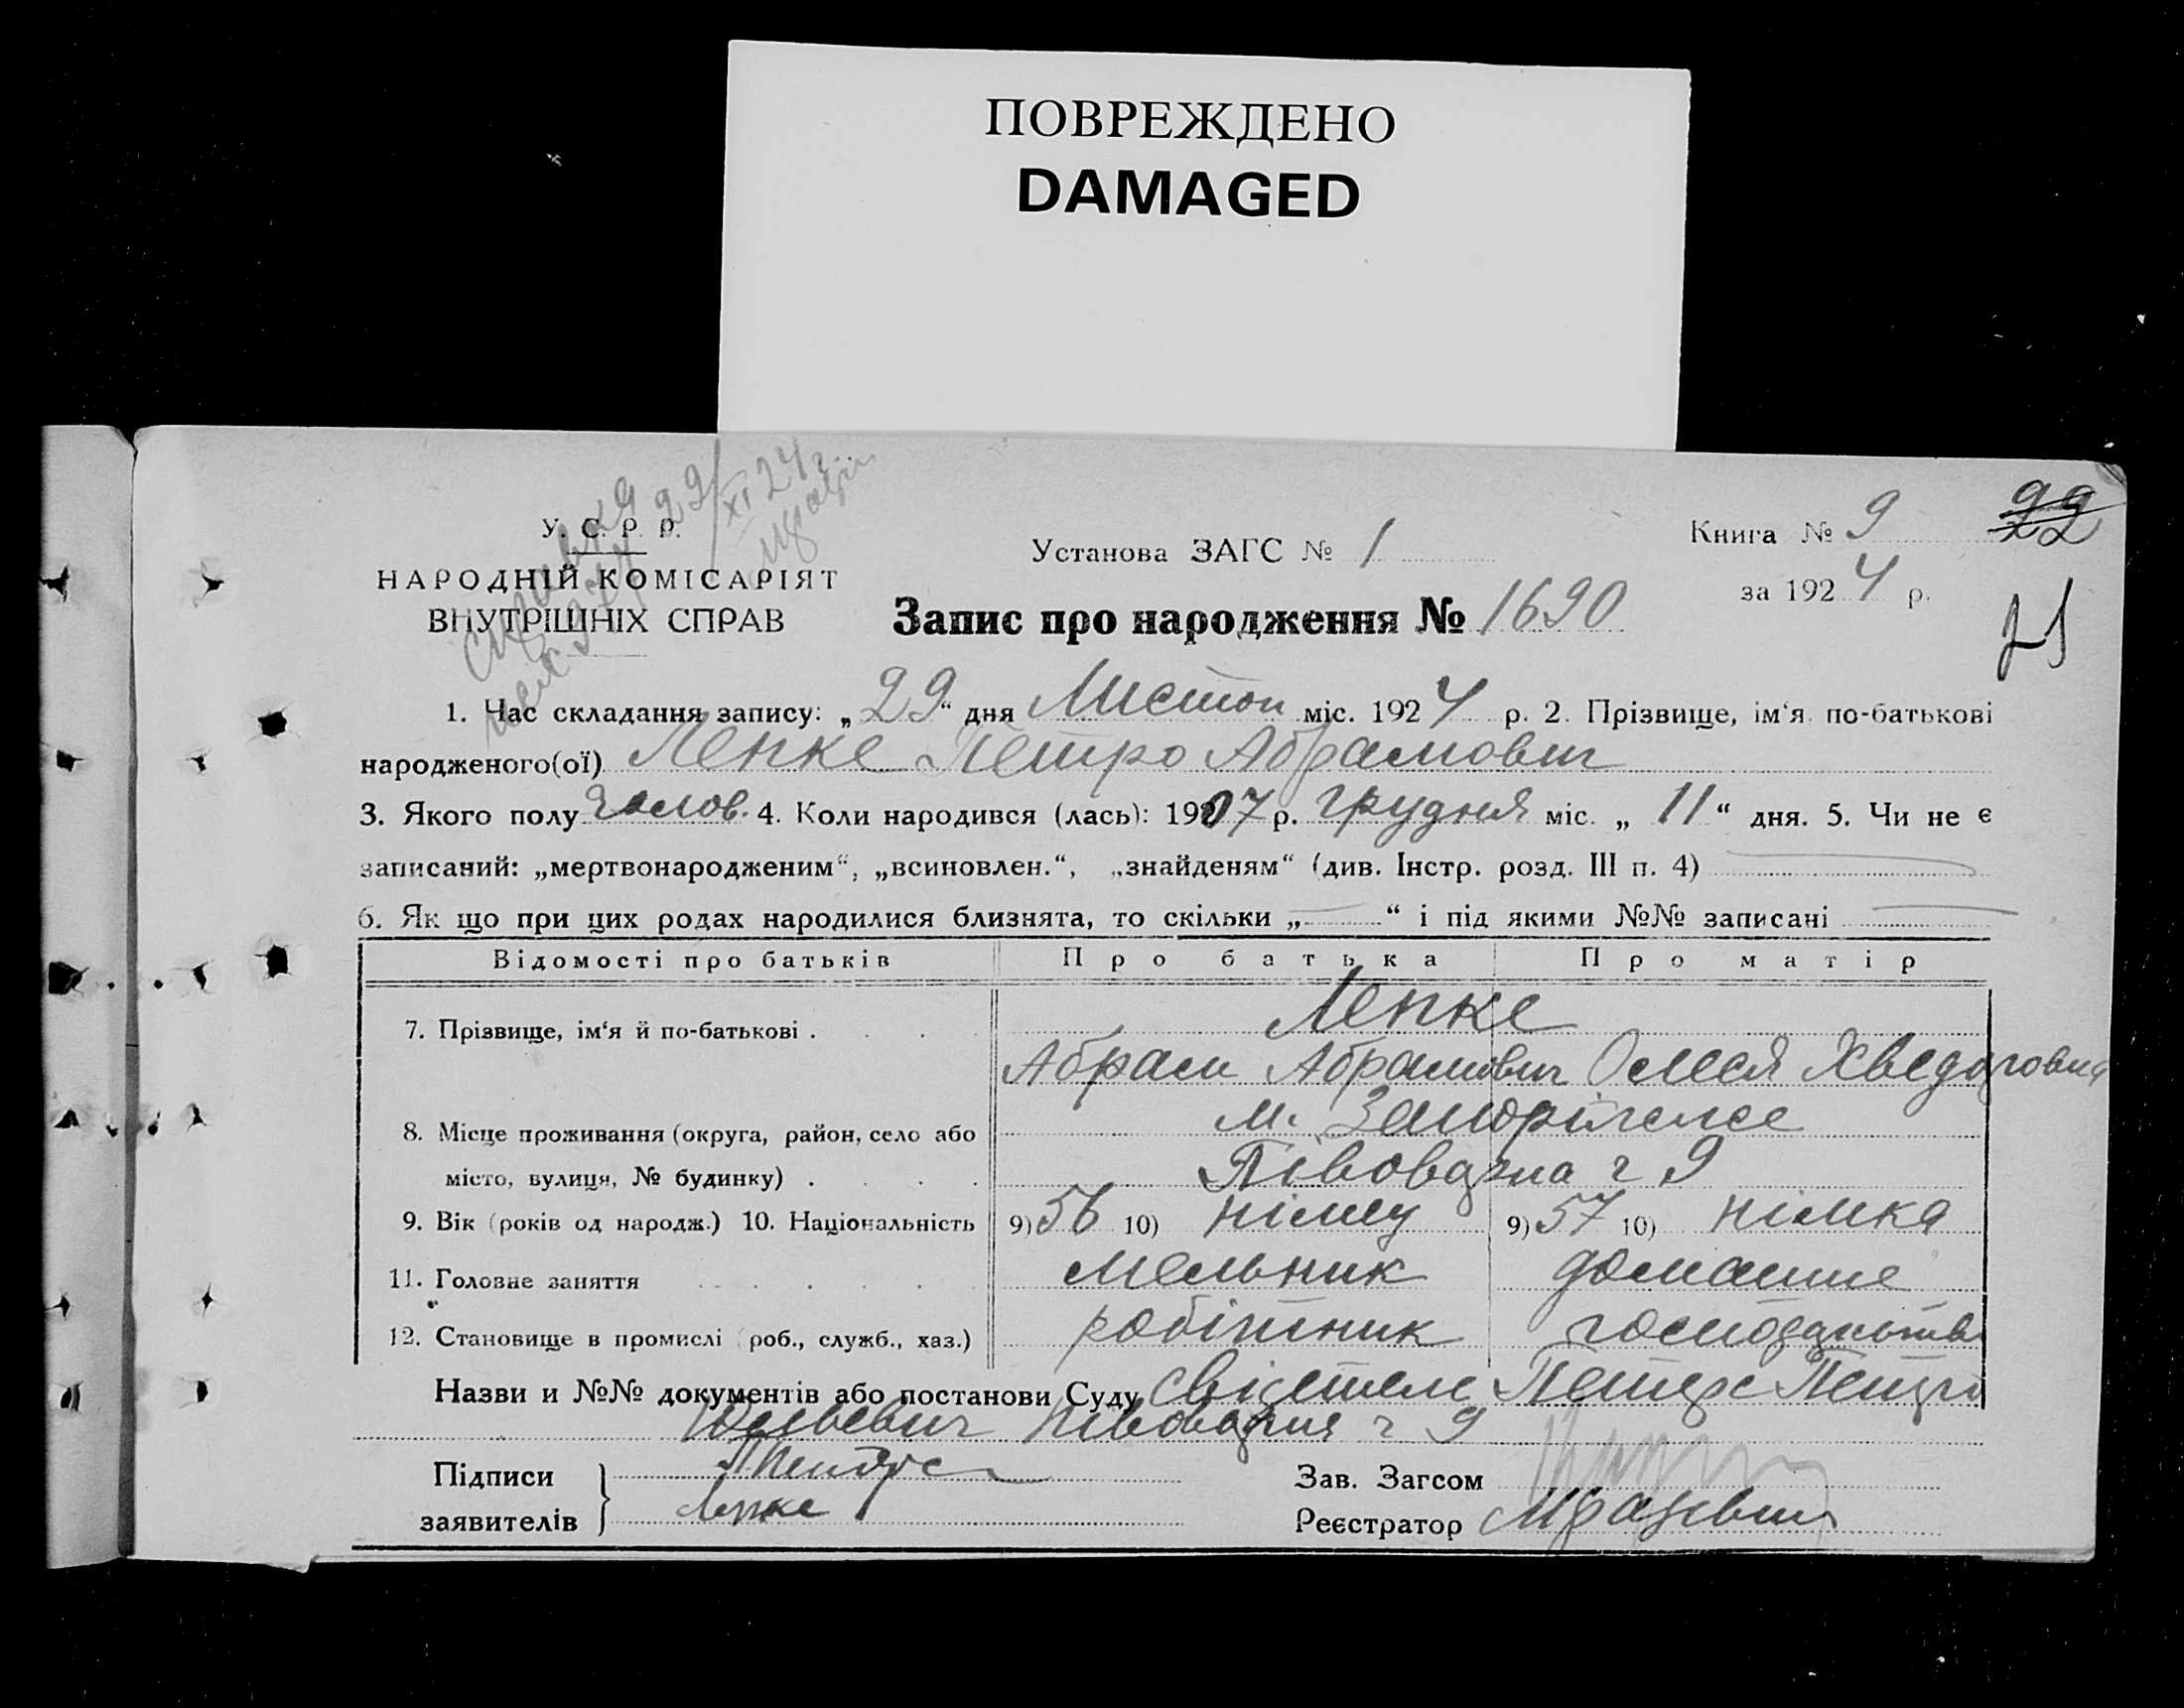 ПОВРЕЖДЕНО
DAMAGED
У. С. Р. Р.
НАРОДНІЙ КОМІСАРІЯТ
ВНУТРІШНІХ СПРАВ
29/XI 24
Установа ЗАГС № 1
Книга № 9
22
за 1924 р.
Запис про народження № 1690
1. Час складання запису: „29“ дня Листоп міс. 1924 р. 2. Прізвище, ім‘я по-батькові
народженого(ої) Лепке Петро Абрамович
3. Якого полу чолов. 4. Коли народився (лась): 1907 р. грудня міс. „11“ дня. 5. Чи не є
записаний: „мертвонародженим“, „всиновлен.“, „знайденям“ (див. Інстр. розд. III п. 4)
6. Як що при цих родах народилися близнята, то скільки „ “ і під якими №№ записані
Відомості про батьків Про батька Про матір
7. Прізвище, ім‘я й по-батькові . . . Лепке
Абрам Абрамович Олеся Хведоровна
8. Місце проживання (округа, район, село або м. Запоріжже
місто, вулиця, № будинку) . . . . Півоварна ч 9
9. Вік (років од народж.) 10. Національність 9) 56 10) німец 9) 57 10) німка
11. Головне заняття . . . . . мельник домашне
12. Становище в промислі (роб., служб., хаз.) робітник господарство
Назви и №№ документів або постанови Суду Петерс
ч 9
Підписи
заявителів
Петерс
Лепке
Зав. Загсом
Реєстратор